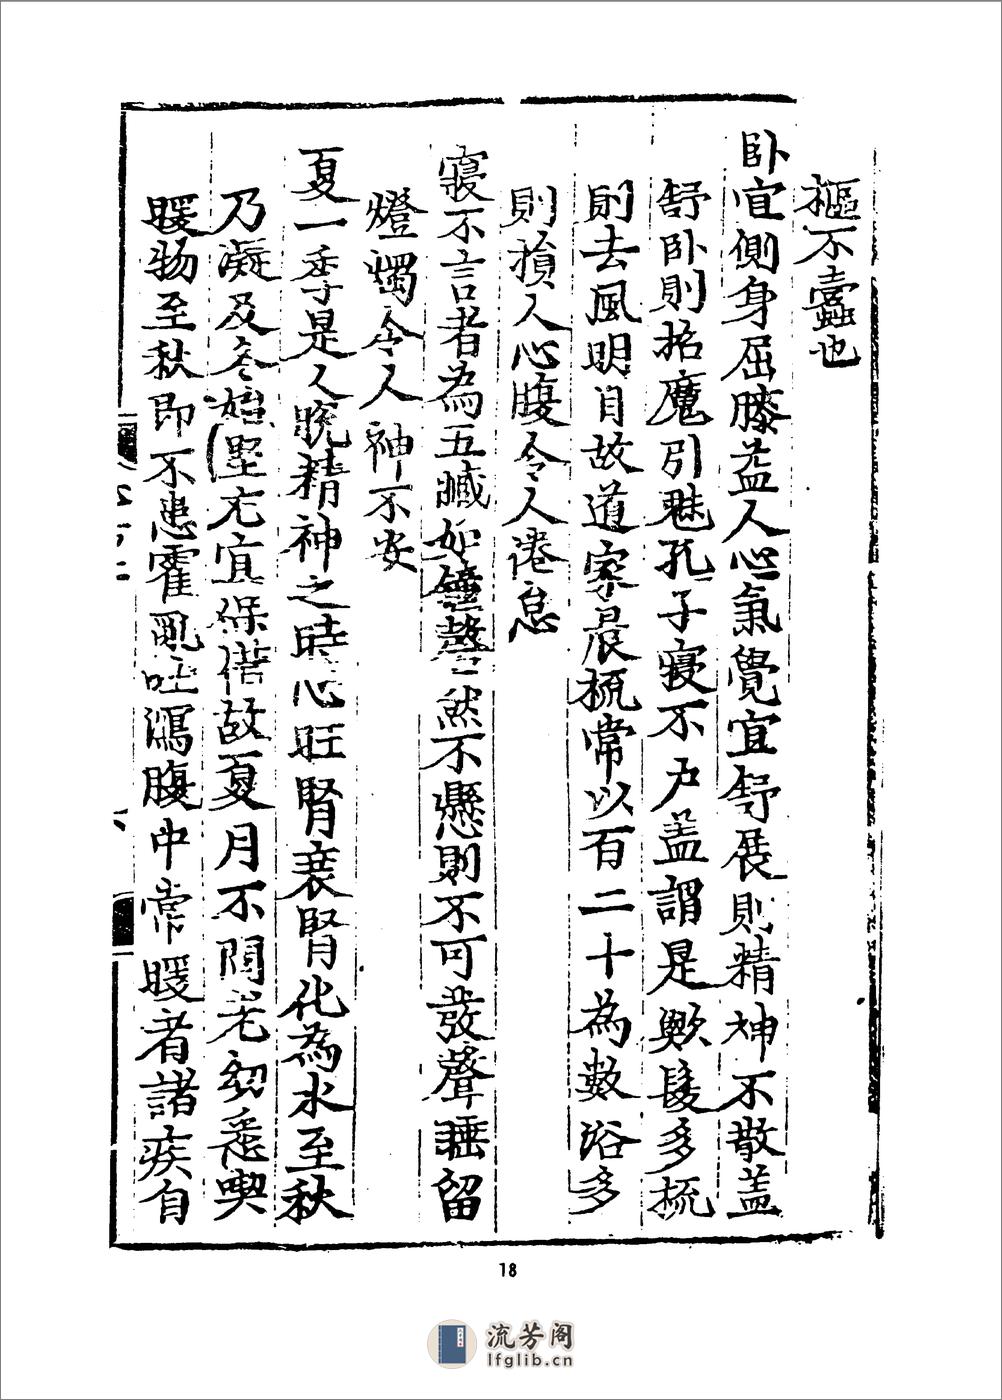 樞不蠹也
卧宜側身屈膝益人心氣覺宜舒展則精神不散蓋
舒卧則招魔引魅孔子寢不尸蓋謂是歟髮多梳
則去風明目故道家晨梳常以百二十為數浴多
則損人心腹令人倦怠
寢不言者為五臟如鐘磬然不懸則不可發聲睡留
燈燭令人神不安
夏一季是人脫精神之時心旺腎衰腎化為水至秋
乃凝及冬始堅尤宜保惜故夏月不問老幼悉喫
暖物至秋即不患霍亂吐瀉腹中常暖者諸疾自
18
流芳阁
lfglib.cn